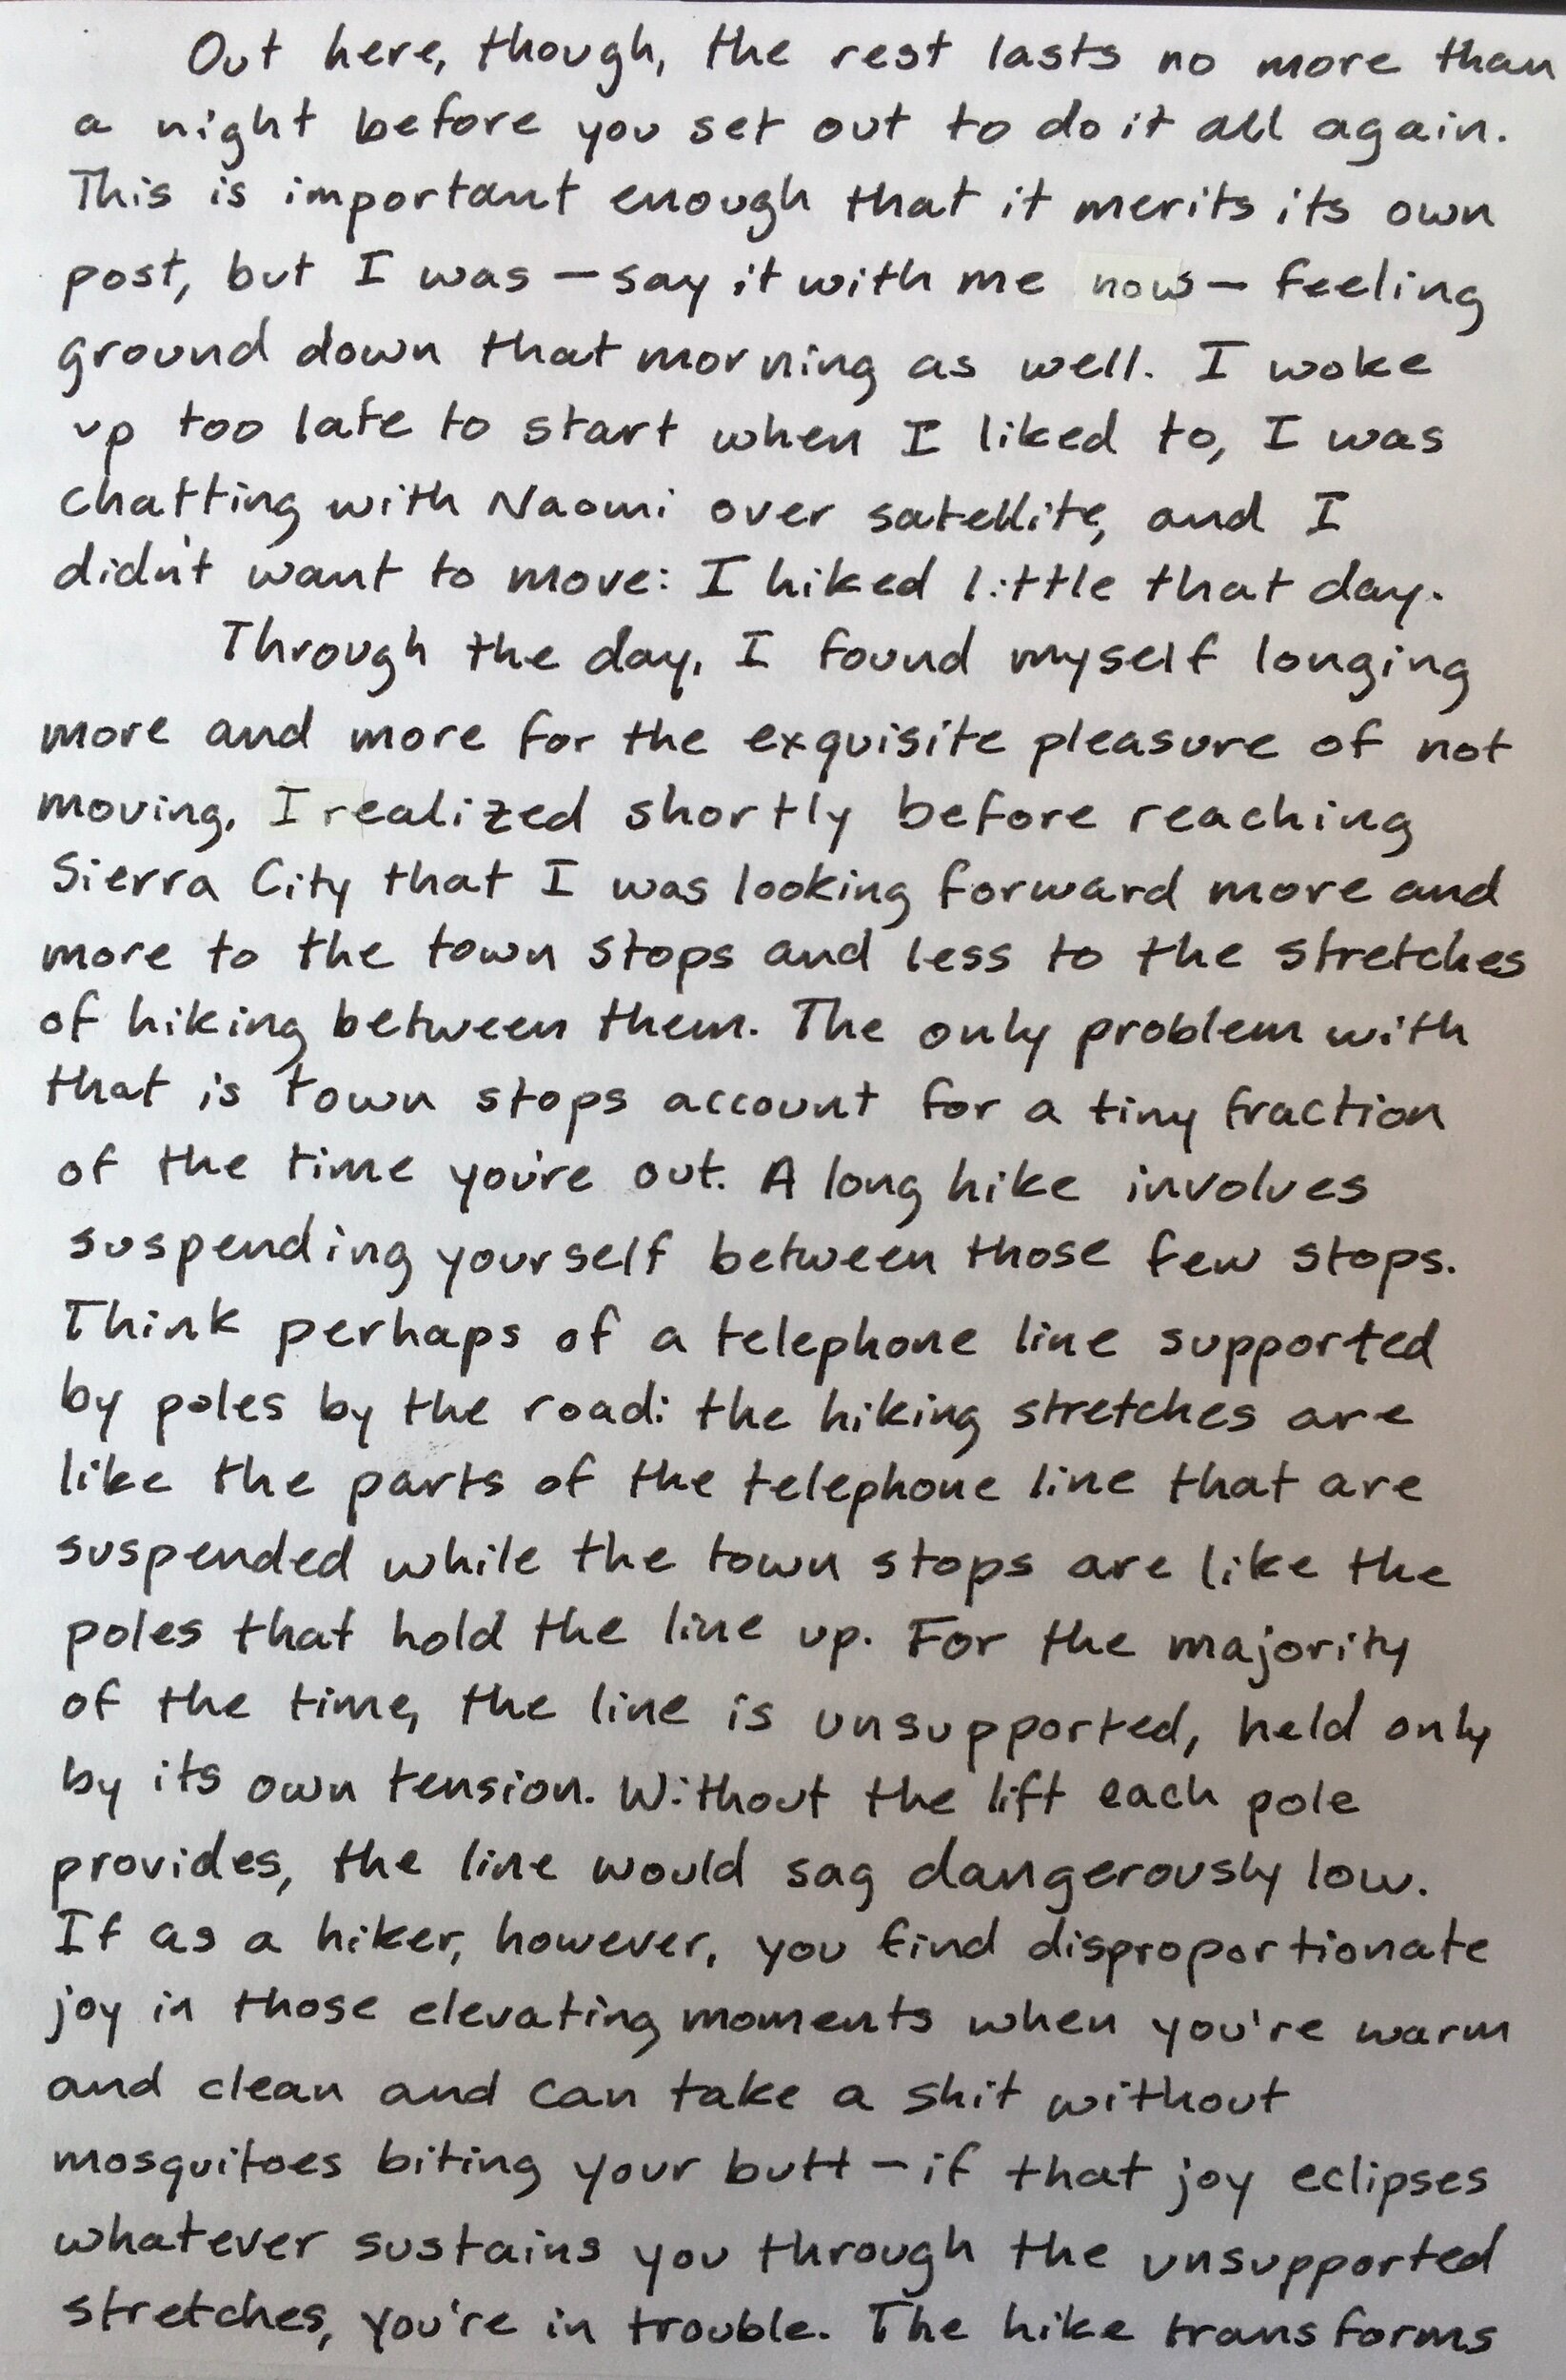 Out here, though, the rest lasts no more than
a night before you set out to do it all again.
This is important enough that it merits its own
post, but I was — say it with me now — feeling
ground down that morning as well. I woke
up too late to start when I liked to, I was
chatting with Naomi over satellite, and I
didn't want to move: I hiked little that day.
Through the day, I found myself longing
more and more for the exquisite pleasure of not
moving. I realized shortly before reaching
Sierra City that I was looking forward more and
more to the town stops and less to the stretches
of hiking between them. The only problem with
that is town stops account for a tiny fraction
of the time you're out. A long hike involves
suspending yourself between those few stops.
Think perhaps of a telephone line supported
by poles by the road: the hiking stretches are
like the parts of the telephone line that are
suspended while the town stops are like the
poles that hold the line up. For the majority
of the time, the line is unsupported, held only
by its own tension. Without the lift each pole
provides, the line would sag dangerously low.
If as a hiker, however, you find disproportionate
joy in those elevating moments when you're warm
and clean and can take a shit without
mosquitoes biting your butt — if that joy eclipses
whatever sustains you through the unsupported
stretches, you're in trouble. The hike transforms